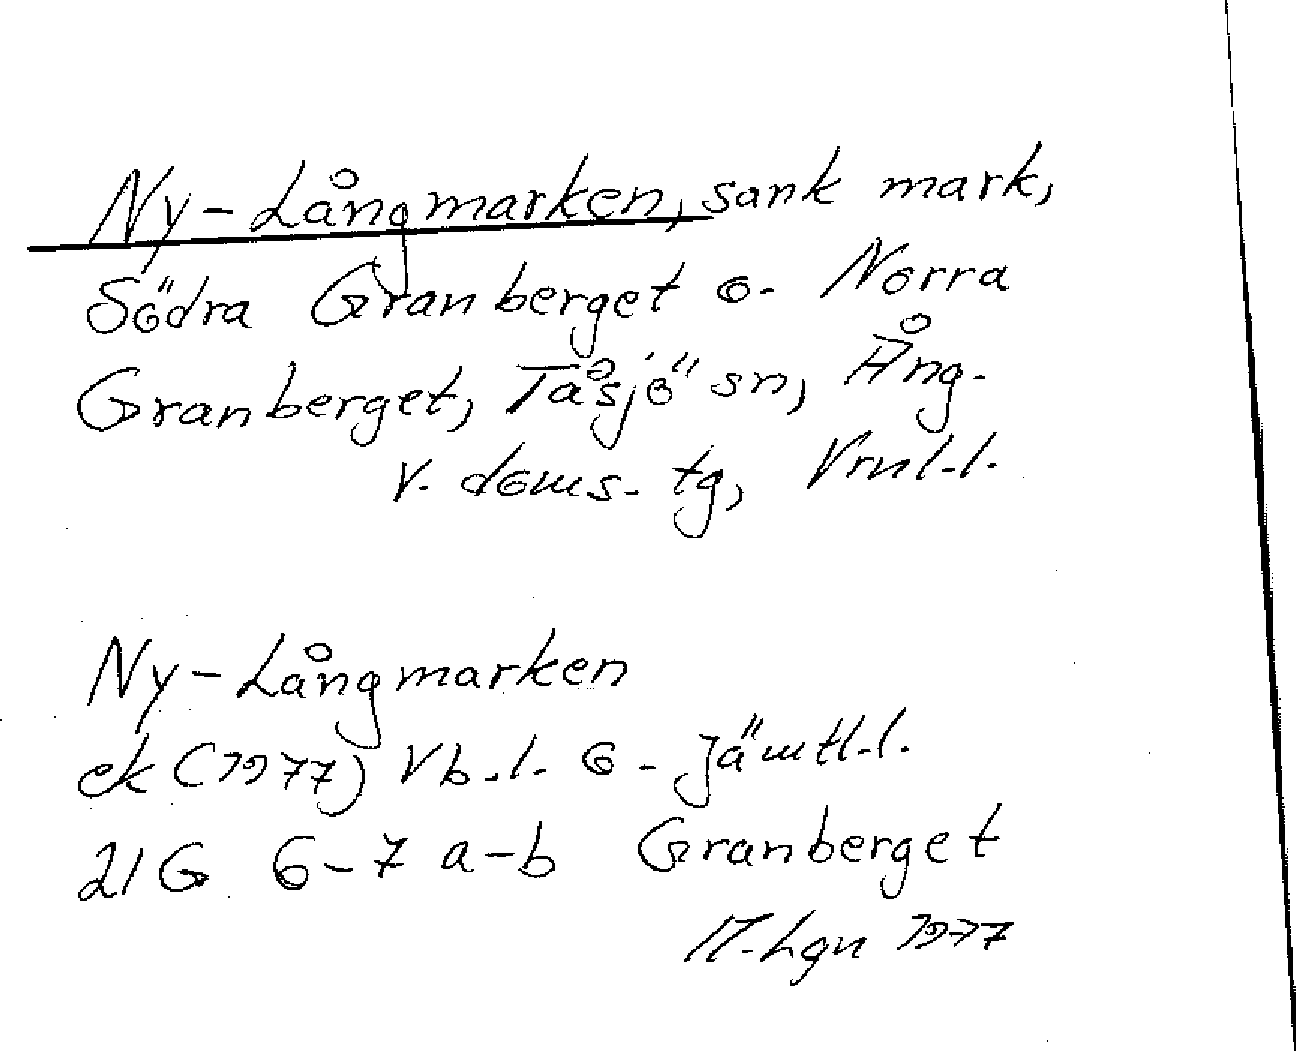 Ny-Långmarken, sank mark,
Södra Granberget o. Norra
Granberget, Tåsjö sn, Ång-
v. doms. tg, Vrnl.l.
Ny-Långmarken
ek (1977) Vb.l. o. Jämtl.l.
21G 6-7 a-b Granberget
Lgn 1977